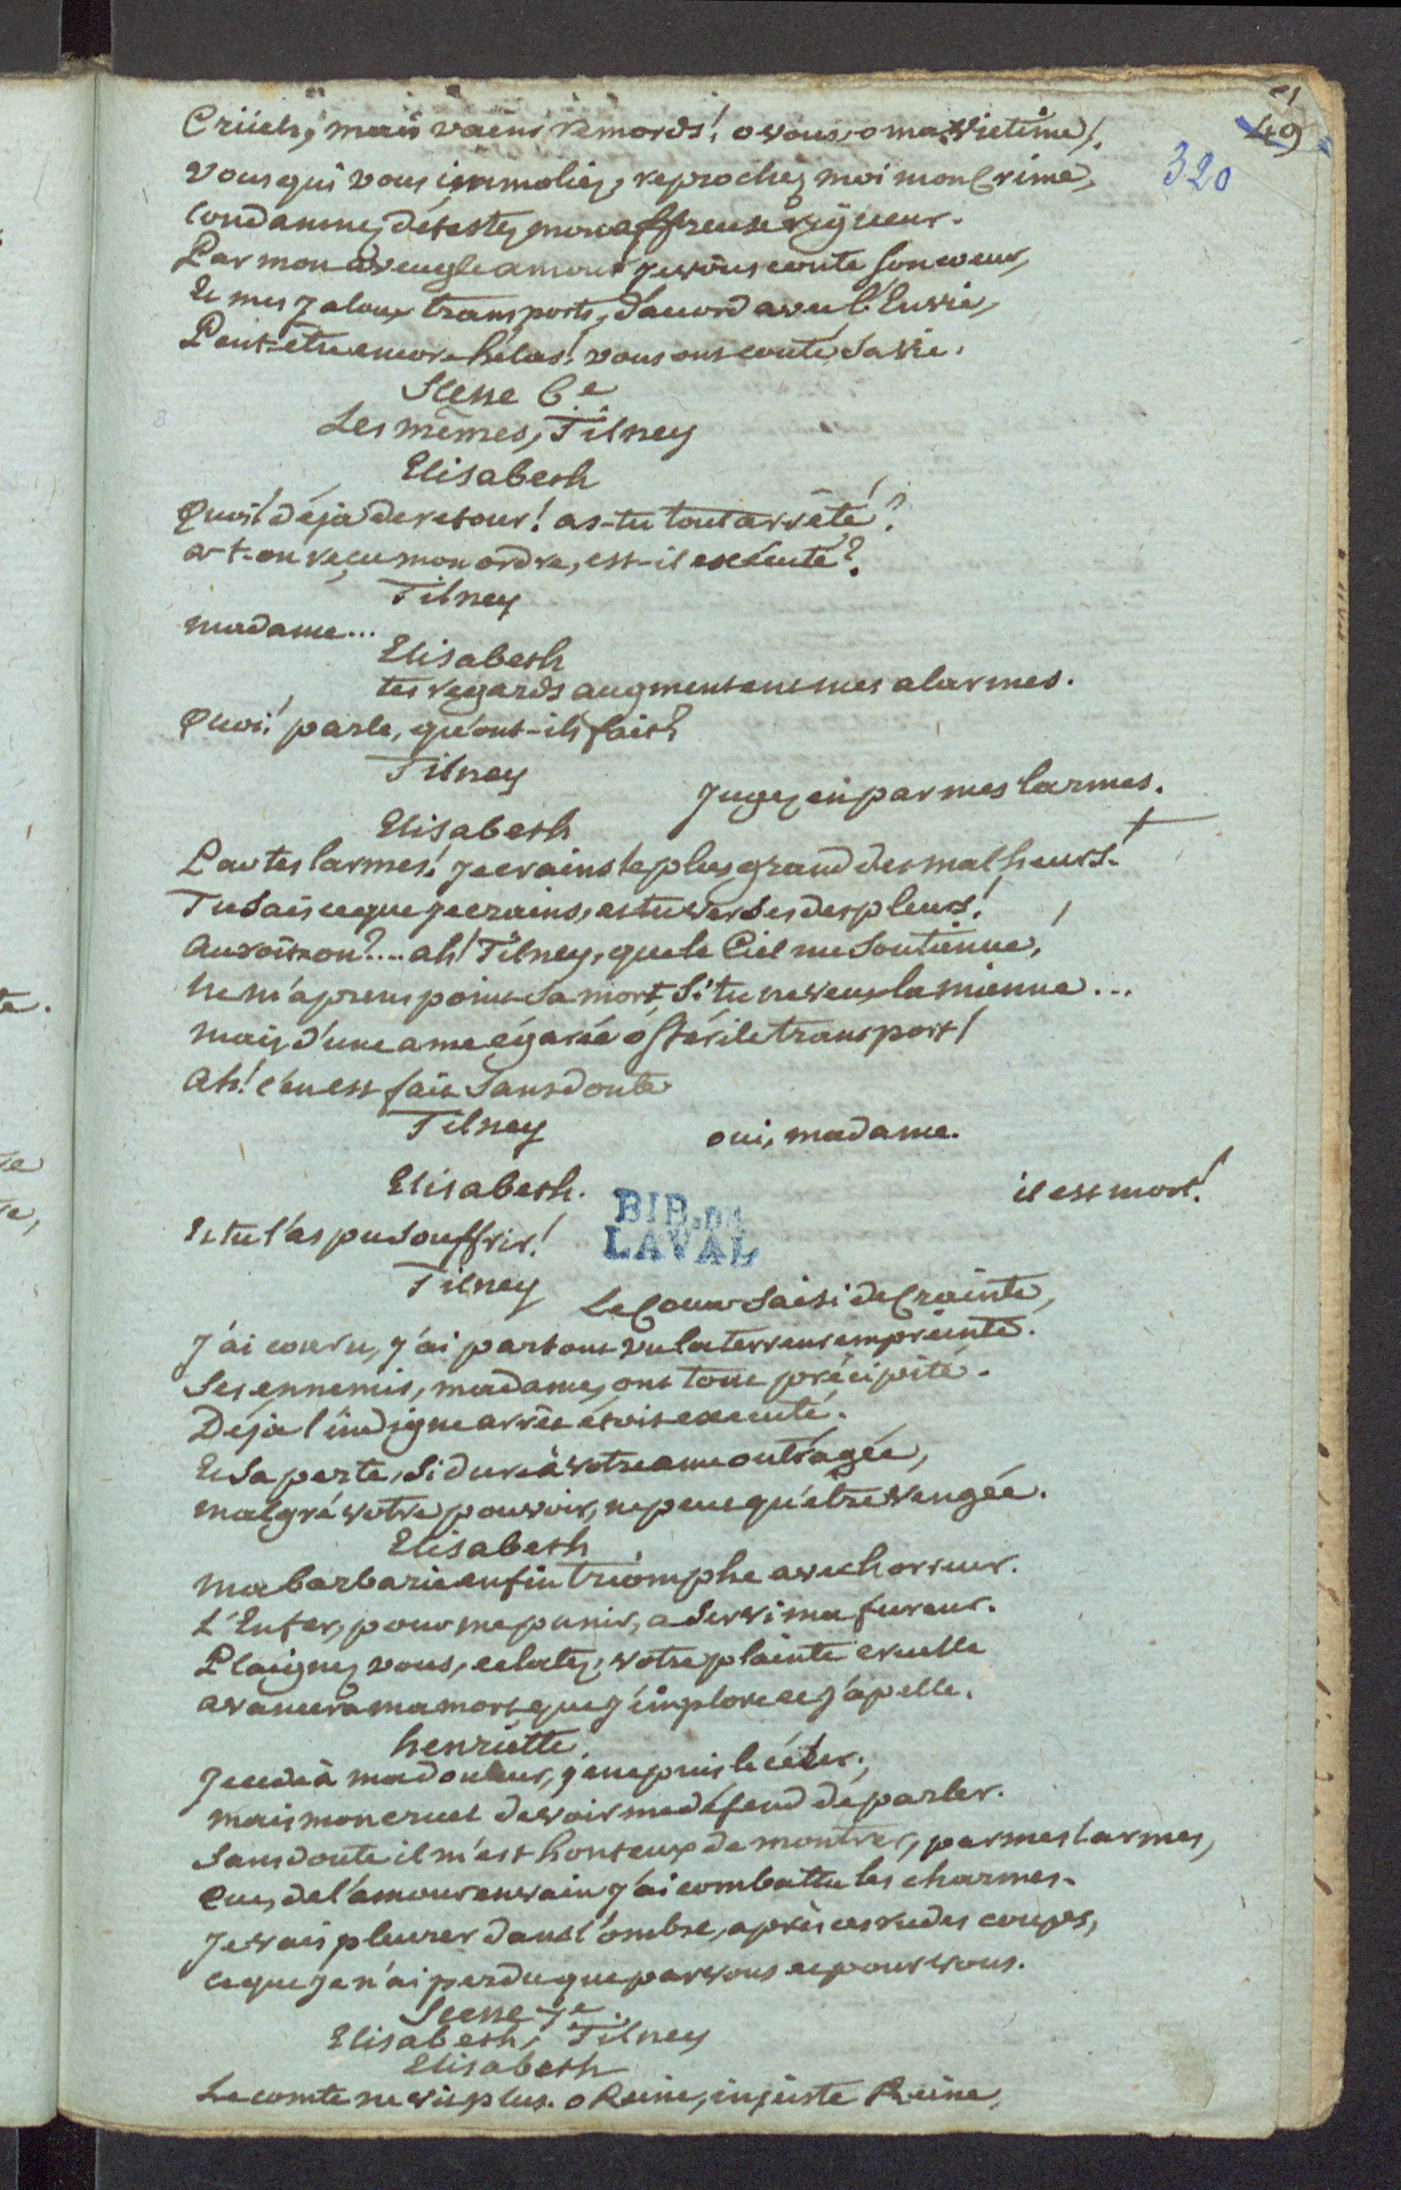 51
49
320
Crüels, mais vains remords! o vous, o ma victime!
Vous qui vous immoliez, reprochez moi mon Crime,
Condamnez, détestez mon affreuse rigueur.
Par mon aveugle amour je vous coute son coeur,
Et mes jaloux transports, d'acord avec l'Envie,
Peut-etre encore hélas! vous ont couté sa vie.
Scene 6e
Les mêmes, Tilney
Elisabeth
Quoi! déja de retour! as-tu tout arrêté?
a-t-on reçu mon ordre, est-il exécuté?
Tilney
madame...
Elisabeth
tes regards augmentent mes alarmes.
Quoi! parle, qu'ont-ils fait?
Tilney
Jugez en par mes larmes.
Elisabeth
Par tes larmes! je crains le plus grand des malheurs!
Tu sais ce que je crains, et tu verses des pleurs!
auroit-on?.... ah! Tilney, que le Ciel me soutienne,
ne m'aprens point sa mort si tu ne veux la mienne...
mais d'une ame égarée ô stérile transport!
Ah! c'en est fait sans doute
Tilney
oui, madame.
Elisabeth.
il est mort!
BIB. DE
LAVAL
Et tu l'as pu souffrir!
Tilney
Le Coeur saisi de Crainte,
J'ai couru, j'ai partout vu la terreur empreinte.
Ses ennemis, madame, ont tout précipité.
Déja l'indigne arrêt étoit executé.
Et sa perte, si dure à votre ame outragée,
malgré votre pouvoir, ne peut qu'etre vengée.
Elisabeth
Ma barbarie enfin triomphe avec horreur.
L'Enfer, pour me punir, a servi ma fureur.
Plaignez vous, eclatez, votre plainte cruelle
avancera ma mort que j'implore et j'apelle.
henriette.
Je cede à ma douleur, je ne puis le céler,
mais mon cruel devoir me défend de parler.
Sans doute il m'est honteux de montrer, par mes larmes,
Que, de l'amour en vain j'ai combattu les charmes.
Je vais pleurer dans l'ombre, après ces rudes coups,
ce que je n'ai perdu que par vous et pour vous.
Scene 7e.
Elisabeth, Tilney
Elisabeth
Le comte ne vit plus. o Reine, injuste Reine,